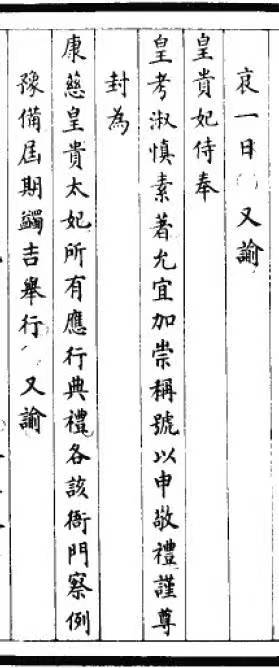 哀一日○又諭
皇貴妃侍奉
皇考淑慎素著允宜加崇稱號以申敬禮謹尊
封為
康慈皇貴太妃所有應行典禮各該衙門察例
豫備屆期蠲吉舉行○又諭